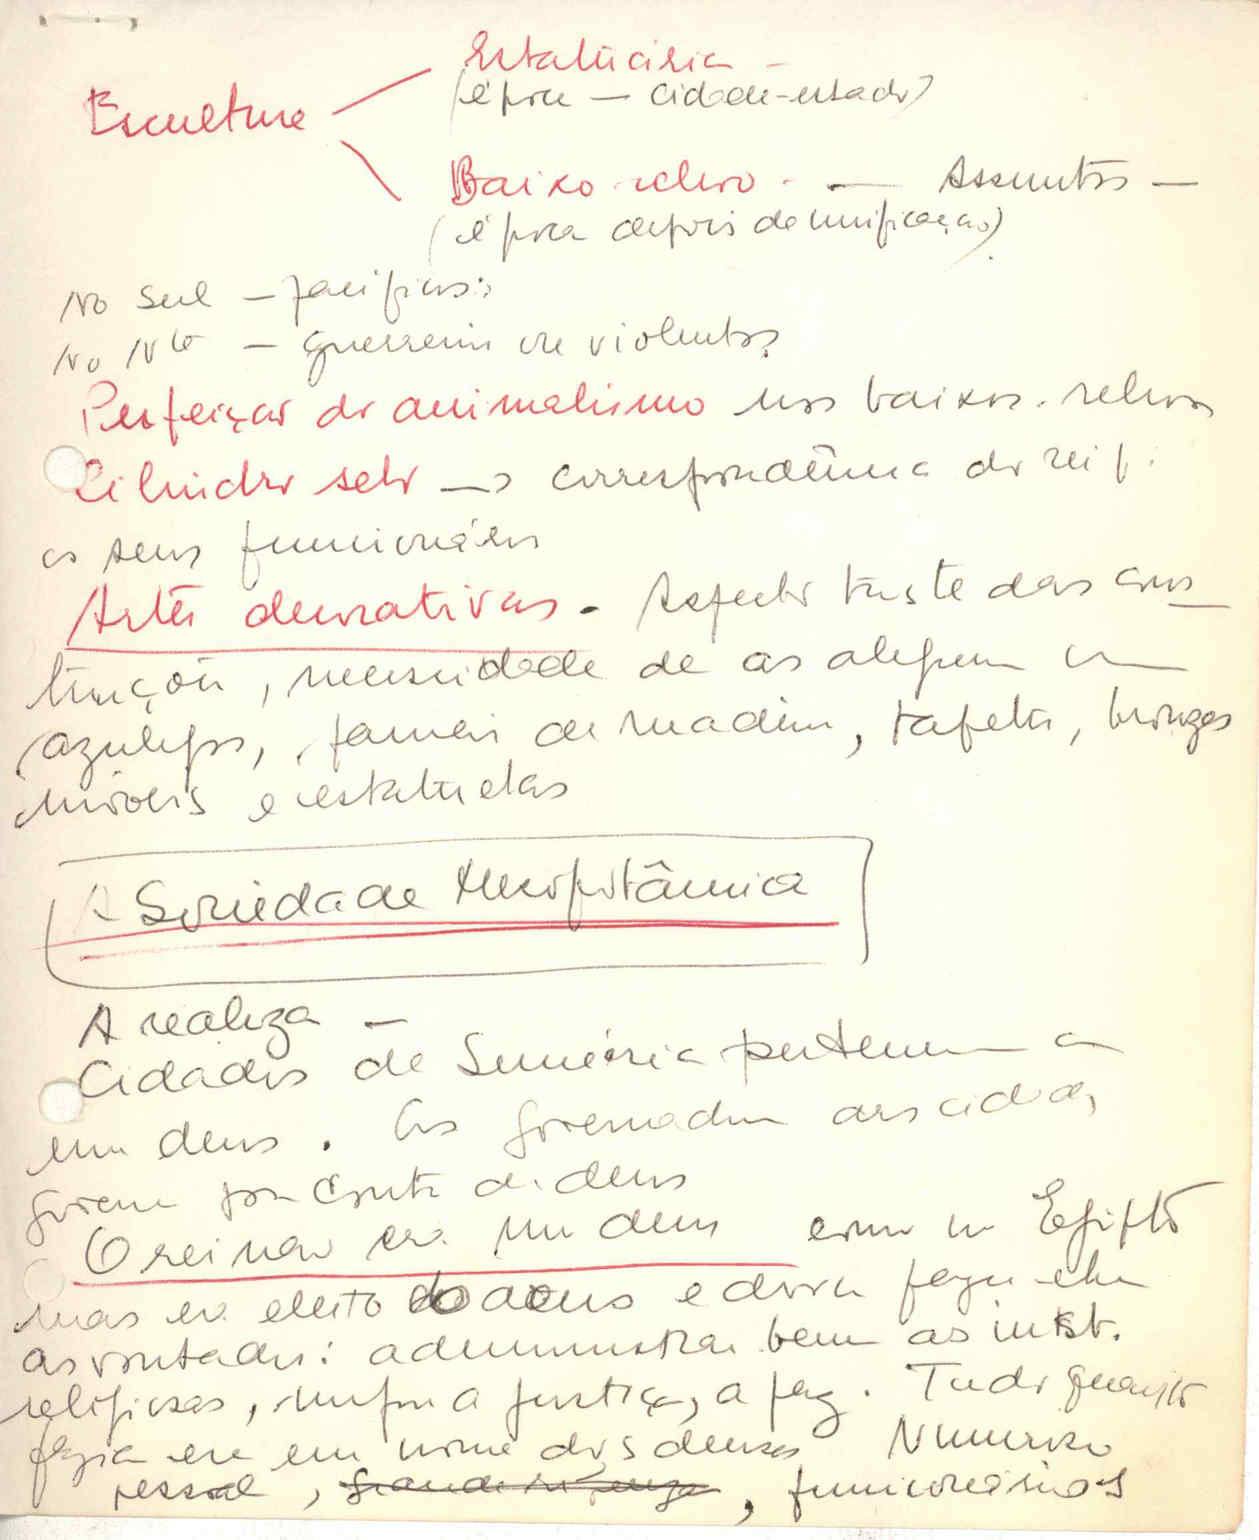 Escultura
Estatuária -
(época - cidade-estado)
Baixo relevo - Assuntos -
(época depois da unificação)
No Sul - pacificos;
No Nte - guerreiros ou violentos
Perfeição do animalismo nos baixos-relevos
Cilindro selo → correspondência do rei p.
os seus funcionários
Artes decorativas - Aspecto triste das cons
truções, necessidade de as alegrar com
azulejos, de madeira, tapetes, bronzes
móveis e estatuetas
A Sociedade Mesopotâmica
A realeza -
Cidades de Suméria pertencem a
um deus. Os governador das cidades,
governa por conta do deus
O rei não era um deus como no Egipto
mas era eleito do deus e devia fazer-lhe
as vontades: administrar bem as inst.
religiosas, impor a justiça, a paz. Tudo quanto
fazia era em nome dos deuses Numeroso
pessoal, , funcionários